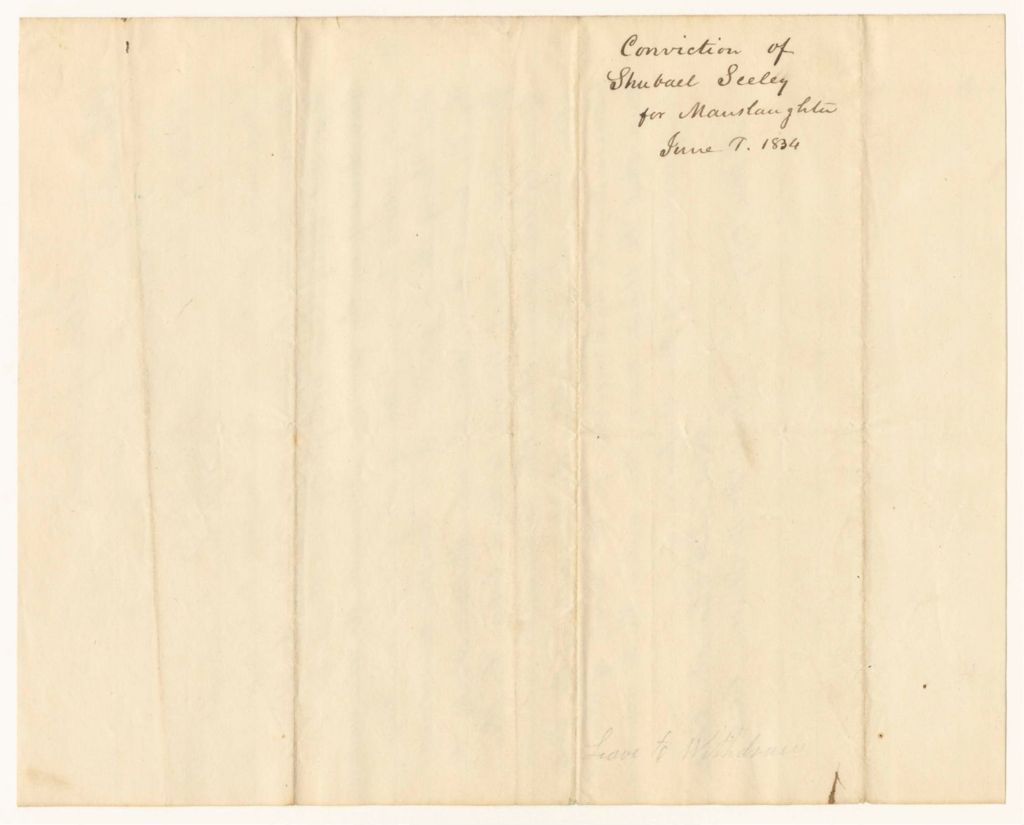 Conviction of
Shubael Seeley
for Manslaughter
June T. 1834
Leave to Withdraw